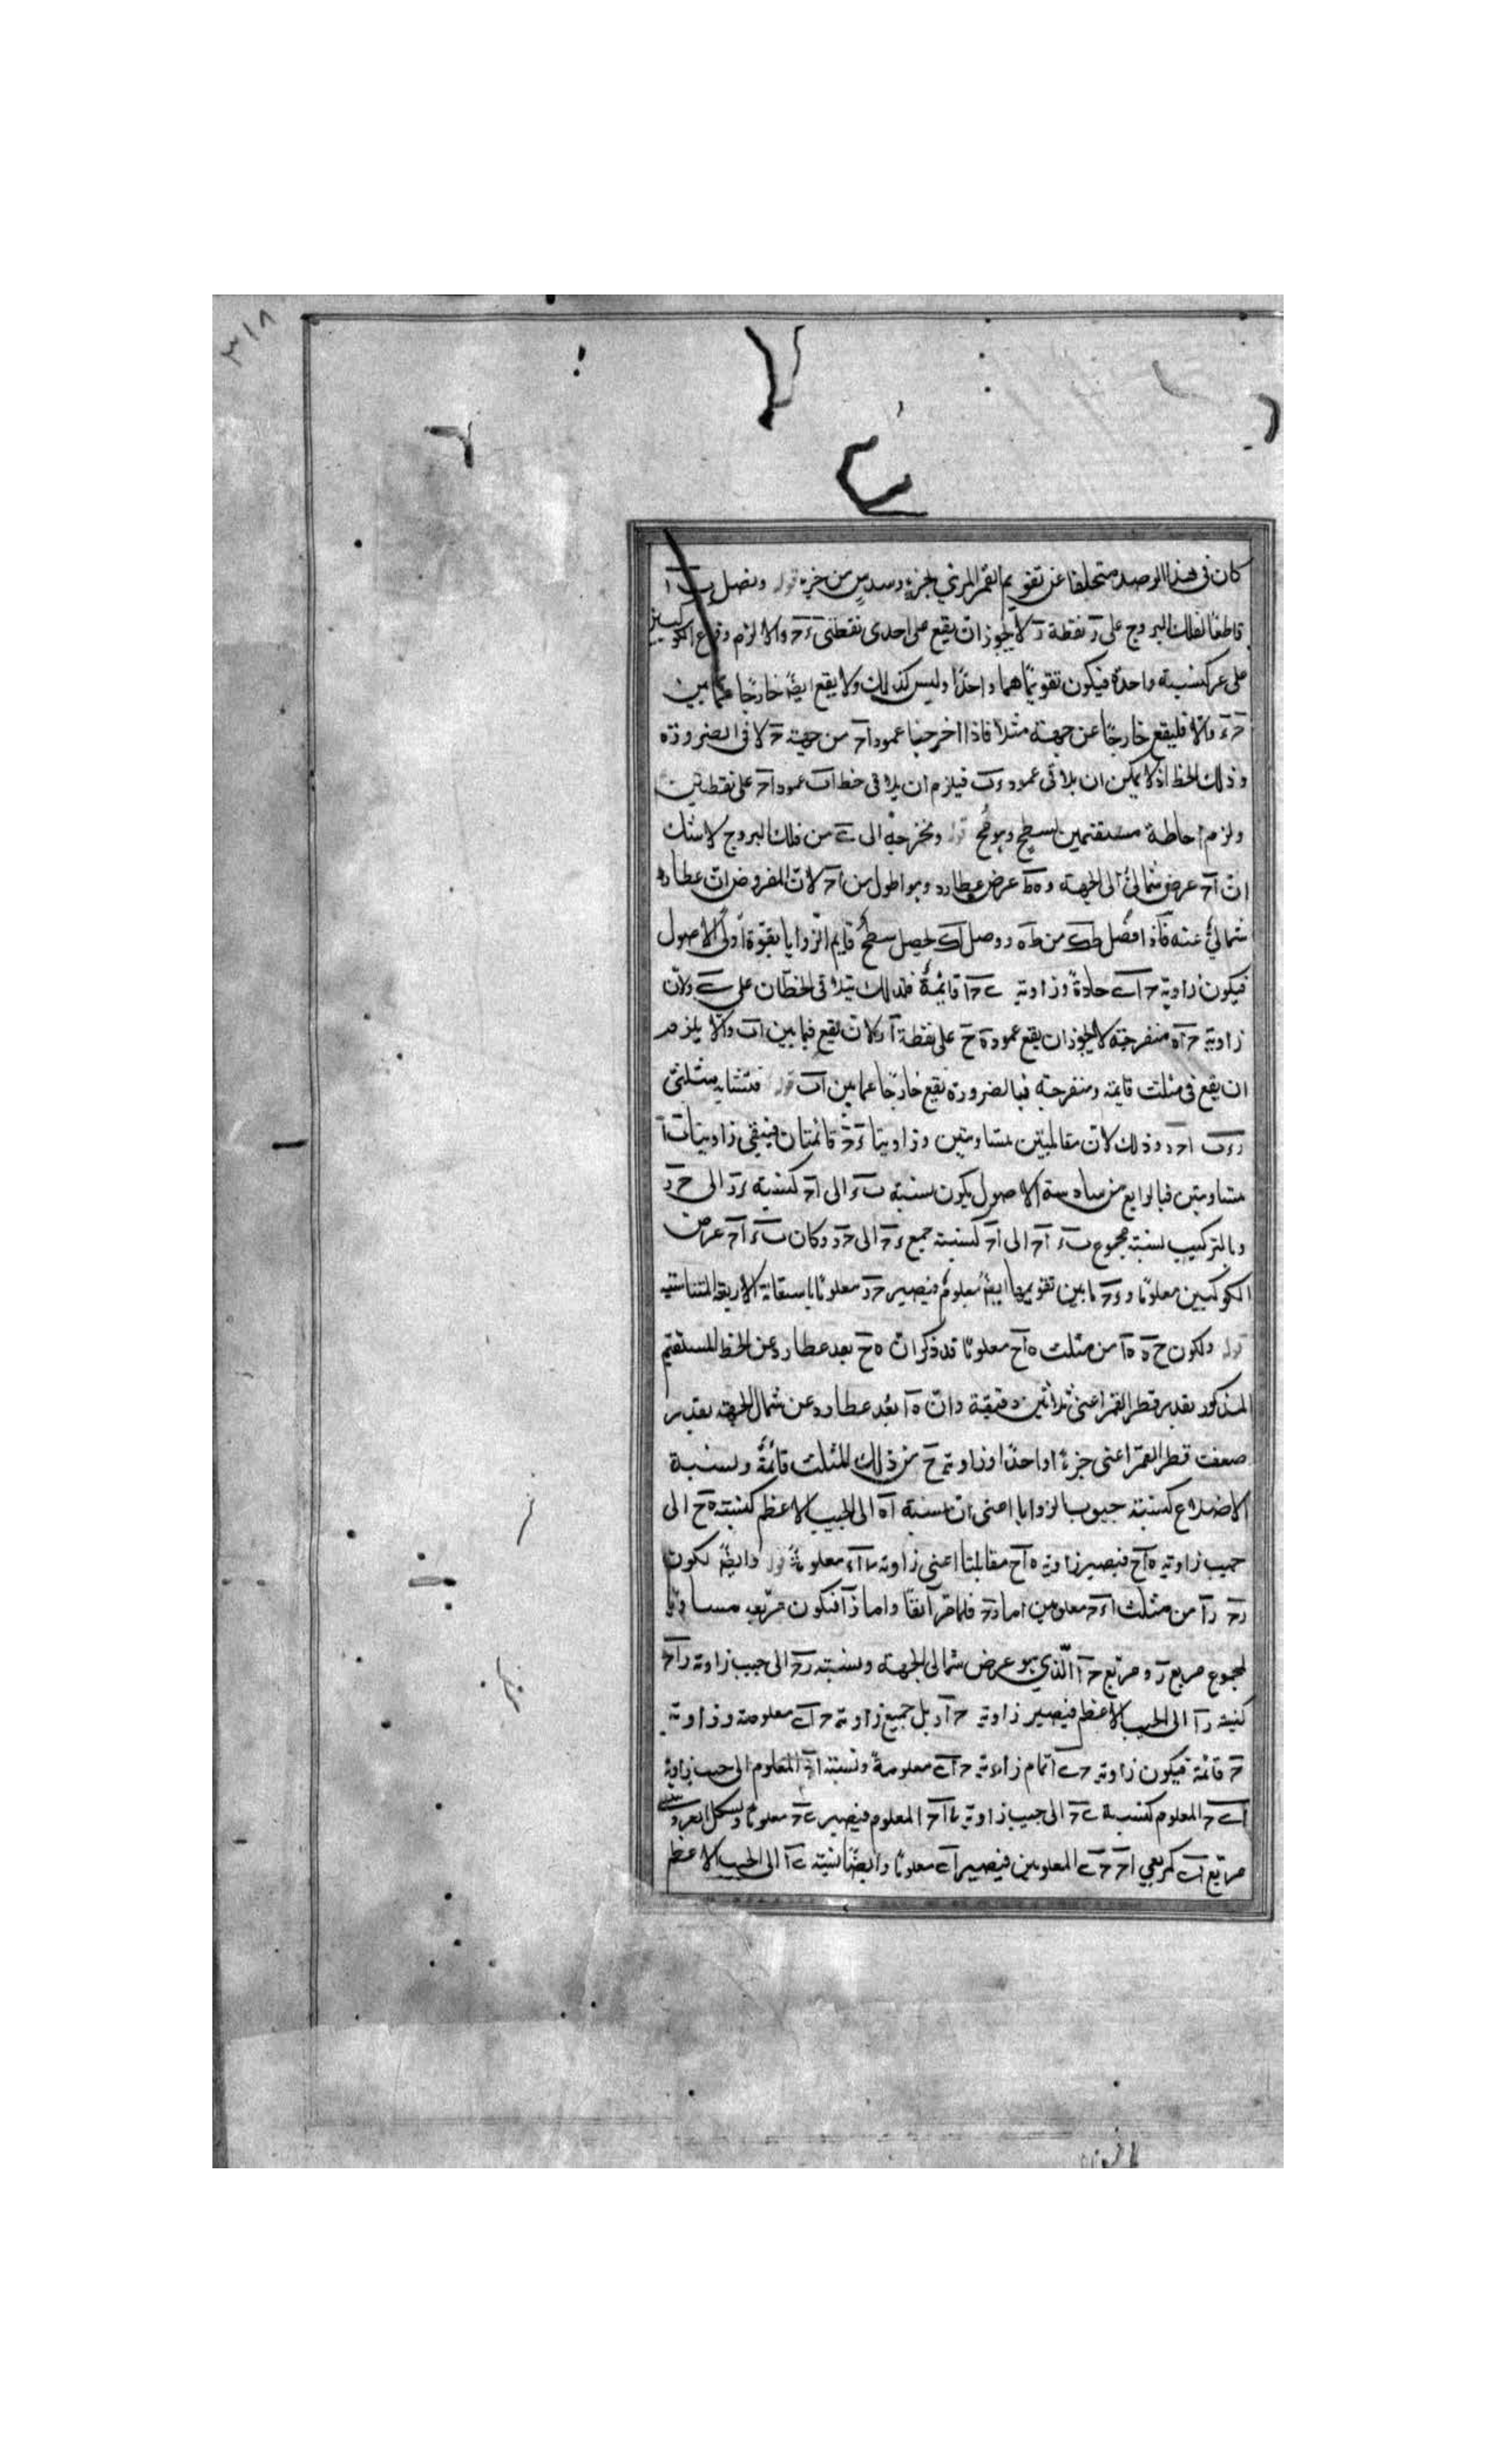 ٣١٨
كان فى هذا الرصد متخلفا عن تقويم القمر المرئي بجزء وسدس من جزء قوله ونصل ب ا
قاطعًا لفلك البروج على د نقطة د لا يجوز ان يقع على احدى نقطتى ء ح والا لزم وقوع الكوكبين
على عر كنسبة واحدة فيكون تقويماهما واحدًا وليس كذلك ولا يقع ايضًا خارجًا عما بين
ح ء والا فليقع خارجًا عن جهة مثلا فاذا اخرجنا عمود اح من جهة ح لاقى الضرورة
وذلك الخط اذ لا يمكن ان يلاقى عمود ء ب فيلزم ان يلاقى خط اب عمود اح على نقطتين
ولزم احاطة مستقيمين بسطح وهو مح قوله ونخرجه الى ى من فلك البروج لا شك
ان اح عرض شمالىّ الجبهة و ه ط عرض عطارد وهو اطول من اح لان المفروض ان عطارد
شمالىّ عنه فاذا فصل ط ك من ط ه ووصل اك يحصل سطح قايم الزوايا بقوة اولى الاصول
فيكون زاوية ح ا ى حادة وزاوية ى ح ا قائمة فلذلك يتلاقى الخطان على ى ولان
زاوية ح ا ه منفرجة لا يجوز ان يقع عمود ه ح على نقطة ا ولا ان يقع فيما بين اب والا يلزم
ان يقع فى مثلث قايمة ومنفرجة فبالضرورة يقع خارجًا عما بين اب قوله فتشابه مثلثى
د ء ب ا ح د وذلك لان متقابلتين متساويتين وزاويتا ء ح قائمتان فيبقى زاويتا ب ا
متساويتين فبالرابع من سادسة الاصول يكون نسبة ب ء الى اح كنسبة ء د الى ح د
وبالتركيب نسبة مجموع ب ء اح الى اح كنسبة جميع ء ح الى ح د وكان ب ء اح عرض
الكوكبين معلومًا و ء ح ما بين تقويمهما ايضًا معلوم فيصير ح د معلومًا باستعانة الاربعة المتناسبة
قوله ولكون ح ه ه ا من مثلث ه ا ح معلومًا قد ذكر ان ه ح بعد عطارد عن الخط المستقيم
المذكور بقدر قطر القمر اعنى ثلاثين دقيقة وان ه ا بُعد عطارد عن شمال الجبهة بقدر
ضعف قطر القمر اعنى جزءًا واحدًا وزاوية ح من ذلك المثلث قائمة ونسبة
الاضلاع كنسبة جيوب الزوايا اعنى ان نسبة ا ه الى الجيب الاعظم كنسبة ه ح الى
جيب زاوية ه ا ح فيصير زاوية ه ا ح مقابلتها اعنى زاوية ى ا ء معلومة قوله وايضًا لكون
د ح د ا من مثلث ا ء ح معلومين اما د ح فلما مر آنفًا واما د ا فلكون مربعه مساويًا
لمجموع مربع د ح ومربع ح ا الّذي هو عرض شمالى الجبهة ونسبة د ح الى جيب زاوية د ا ح
كنسبة د ا الى الجيب الاعظم فيصير زاوية ح ا د بل جميع زاوية ح ا ى معلومة وزاوية
ح قائمة فيكون زاوية ح ى ا تمام زاوية ح ا ى معلومة ونسبة اح المعلوم الى جيب زاوية
ا ى ح المعلوم كنسبة ى ح الى جيب زاوية ى ا ح المعلوم فيصير ى ح معلومًا وبشكل العروس
مربع ا ى كمربعي اح ح ى المعلومين فيصير ا ى معلومًا وايضًا نسبة ى ا الى الجيب الاعظم